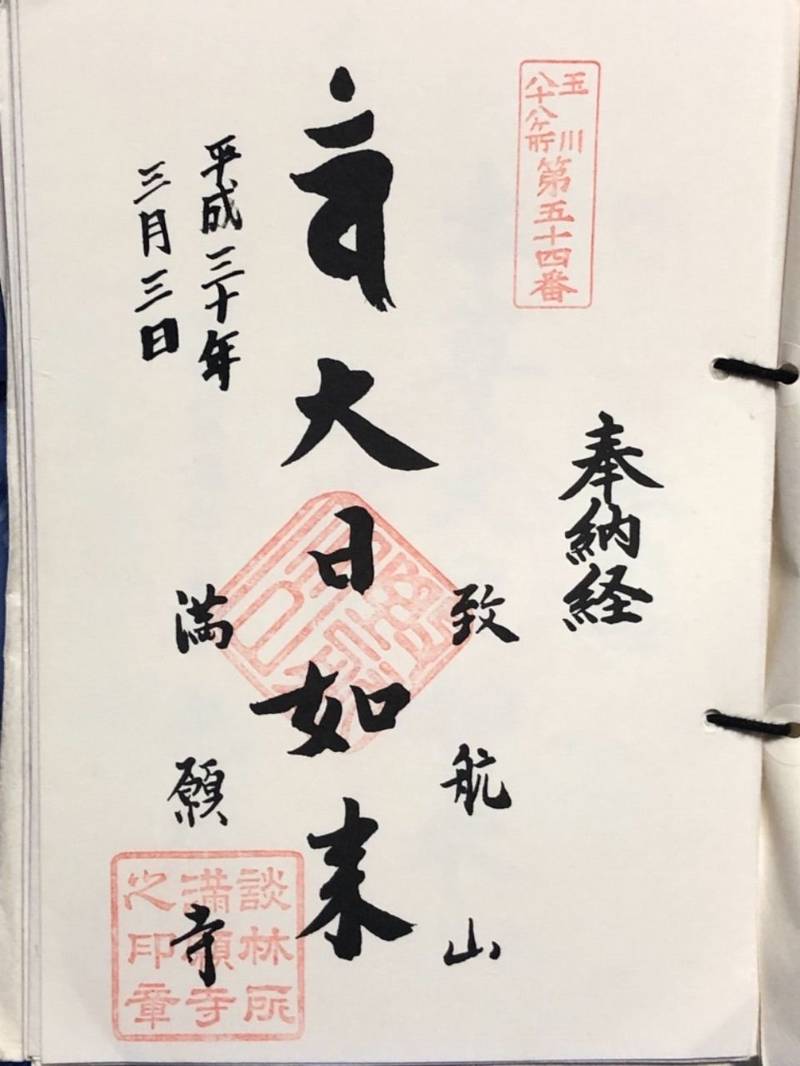 玉川
八十八ヶ所
第五十四番
奉納経
致航山
大日如来
満願寺
平成三十年
三月三日
談林所
満願寺
之印章